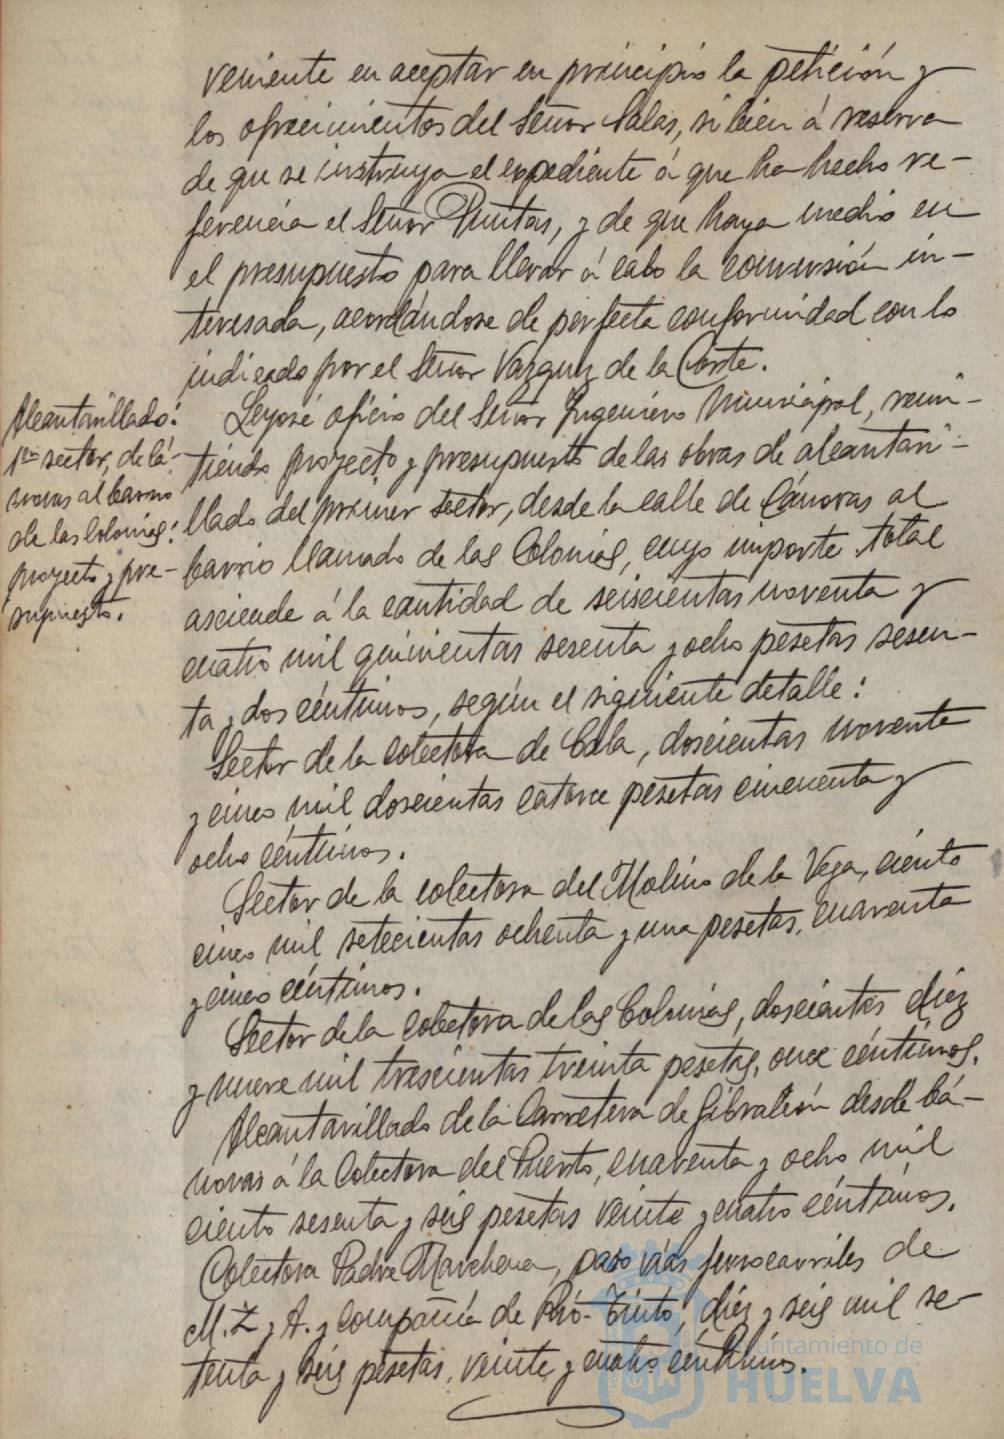 veniente en aceptar en principio la petición y
los ofrecimientos del Señor Salas, si bien á reserva
de que se instruya el expediente á que ha hecho re-
ferencia el Señor Puntas, y de que haya medio en
el presupuesto para llevar á cabo la conversión in-
teresada, acordándose de perfecta conformidad con lo
indicado por el Señor Vazquez de la Corte.
Alcantarillado:
1er sector, de Cá-
novas al barrio
de las Colonias:
proyecto y pre-
supuesto.
Leyose oficio del Señor Ingeniero Municipal, remi-
tiendo proyecto y presupuesto de las obras de alcantari-
llado del primer sector, desde la calle de Cánovas al
barrio llamado de las Colonias, cuyo importe total
asciende á la cantidad de seiscientas noventa y
cuatro mil quinientas sesenta y ocho pesetas sesen-
ta y dos céntimos, según el siguiente detalle:
Sector de la colectora de Cala, doscientas noventa
y cinco mil doscientas catorce pesetas cincuenta y
ocho céntimos.
Sector de la colectora del Molino de la Vega, ciento
cinco mil setecientas ochenta y una pesetas, cuarenta
y cinco céntimos.
Sector de la Colectora de las Colonias, doscientas diez
y nueve mil trescientas treinta pesetas, once céntimos.
Alcantarillado de la Carretera de Gibraleón desde Cá-
novas á la Colectora del Puerto, cuarenta y ocho mil
ciento sesenta y seis pesetas veinte y cuatro céntimos.
Colectora Padre Marchena, paso vías ferrocarriles de
M. Z. y A. y Compañía de Rio-Tinto, diez y seis mil se-
tenta y seis pesetas, veinte y cuatro céntimos.
Ayuntamiento de
HUELVA